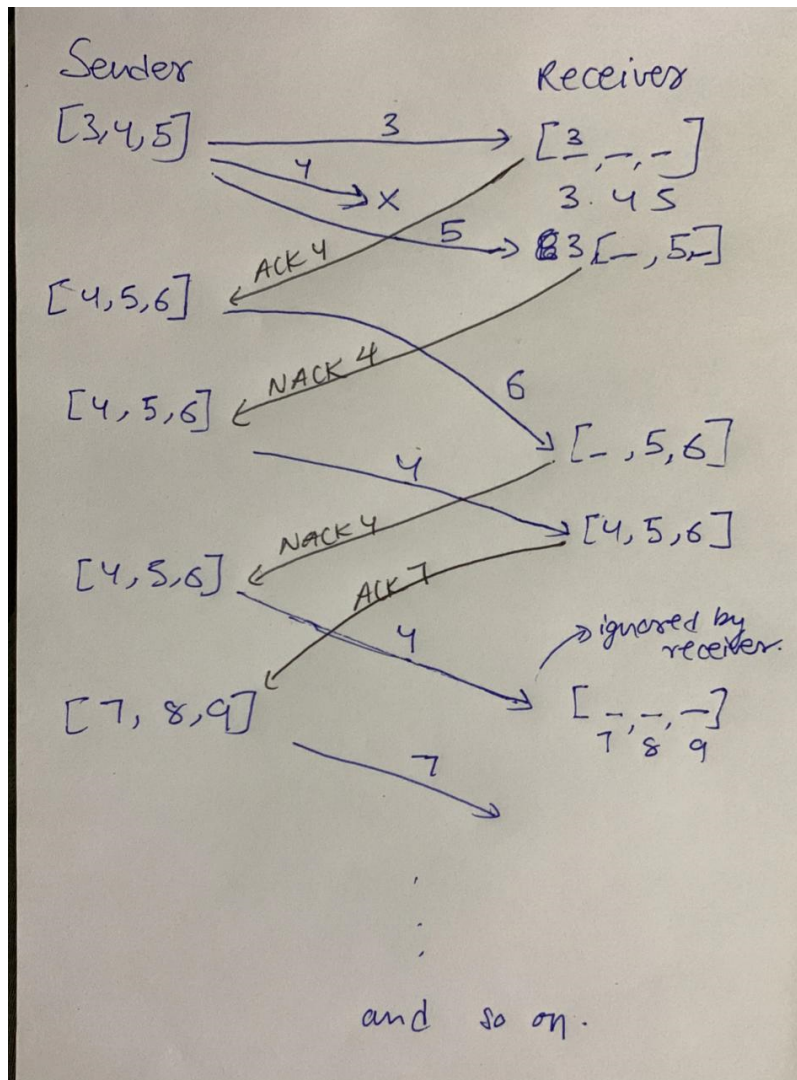 Sender
Receiver
[3,4,5]
3
[3,_,_]
4
x
3. 4 5
5
3[_,5,_]
ACK 4
[4,5,6]
NACK 4
6
[4,5,6]
[_,5,6]
4
NACK 4
[4,5,6]
[4,5,6]
ACK 7
4
ignored by
receiver.
[7, 8,9]
[_,_,_]
7 8 9
7
and so on.